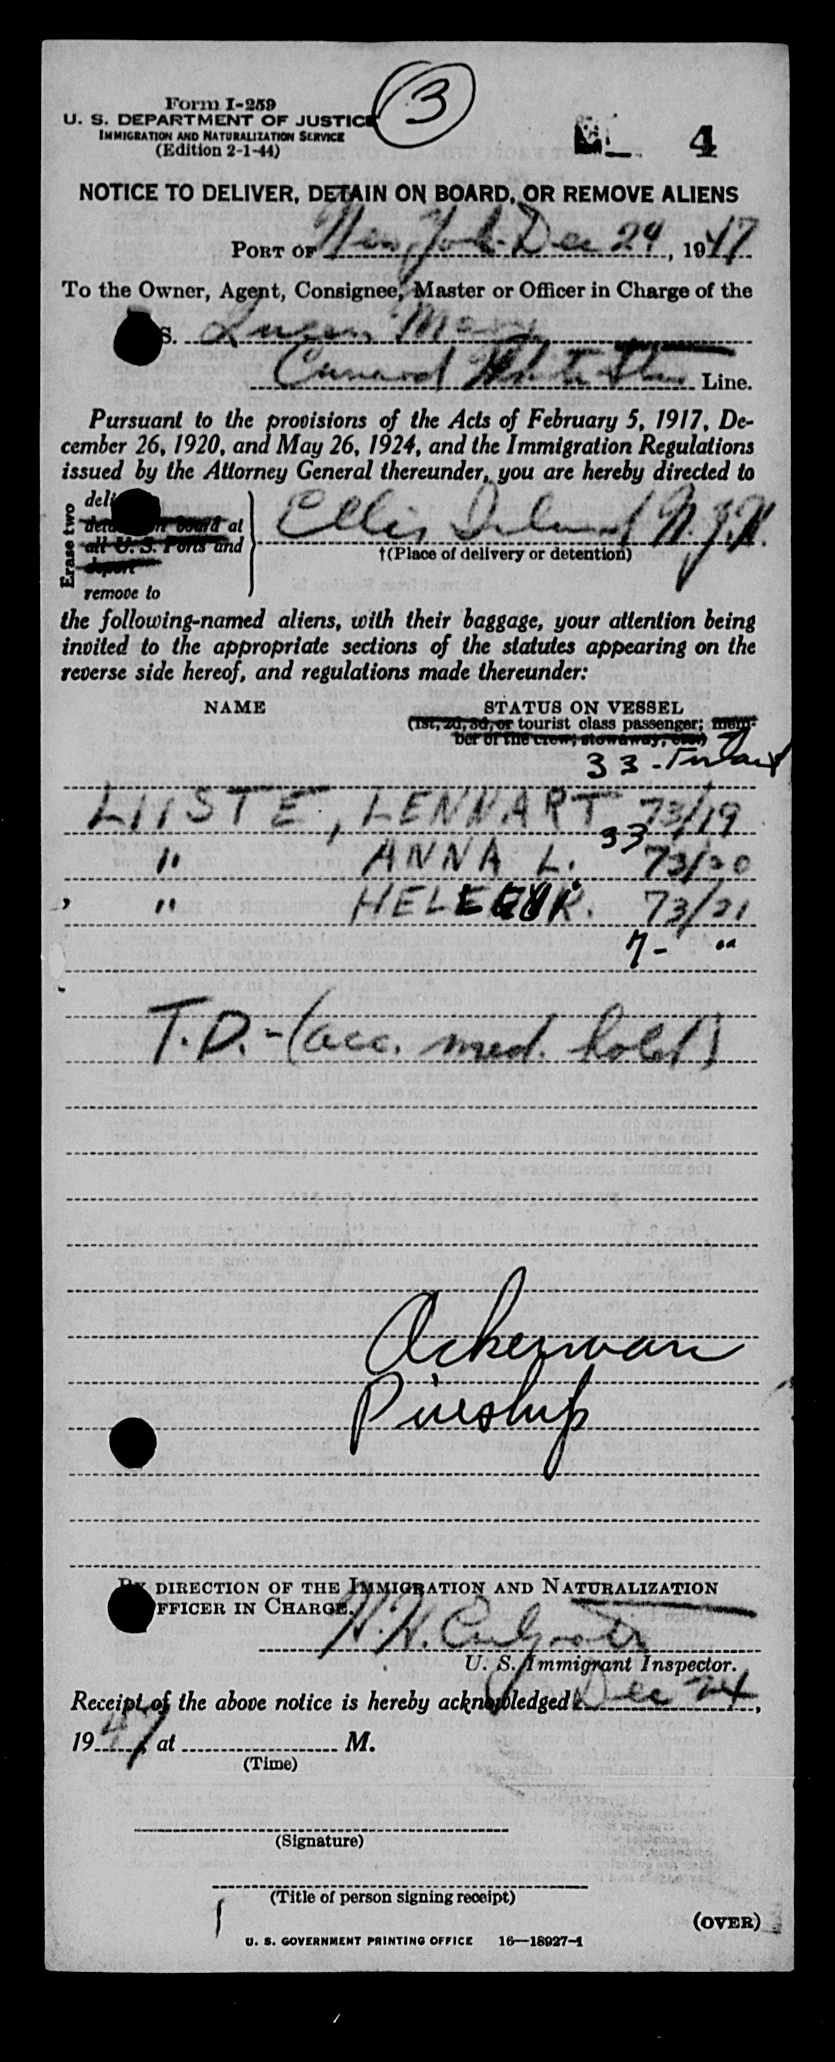 3
Form I-259
U. S. DEPARTMENT OF JUSTICE
IMMIGRATION AND NATURALIZATION SERVICE
(Edition 2-1-44)
4
NOTICE TO DELIVER, DETAIN ON BOARD, OR REMOVE ALIENS
PORT OF New York Dec 24, 1947
To the Owner, Agent, Consignee, Master or Officer in Charge of the
S. Queen Mary
Cunard White Star Line.
Pursuant to the provisions of the Acts of February 5, 1917, De-
cember 26, 1920, and May 26, 1924, and the Immigration Regulations
issued by the Attorney General thereunder, you are hereby directed to
Erase two
deli
detain on board at
all U. S. Ports and
deport
remove to
Ellis Island N.Y.H.
†(Place of delivery or detention)
the following-named aliens, with their baggage, your attention being
invited to the appropriate sections of the statutes appearing on the
reverse side hereof, and regulations made thereunder:
NAME STATUS ON VESSEL
(1st, 2d, 3d, or tourist class passenger; mem-
ber of the crew; stowaway, etc.)
33 -
LIISTE, LENNART 73/19
33
" ANNA L. 73/20
" 73/21
7 - "
T.D. - (acc. med. hold)
Ackerman
BY DIRECTION OF THE IMMIGRATION AND NATURALIZATION
OFFICER IN CHARGE.
U. S. Immigrant Inspector.
Receipt of the above notice is hereby acknowledged Dec 24,
1947 at M.
(Time)
(Signature)
(Title of person signing receipt)
(OVER)
U. S. GOVERNMENT PRINTING OFFICE 16—18927-1